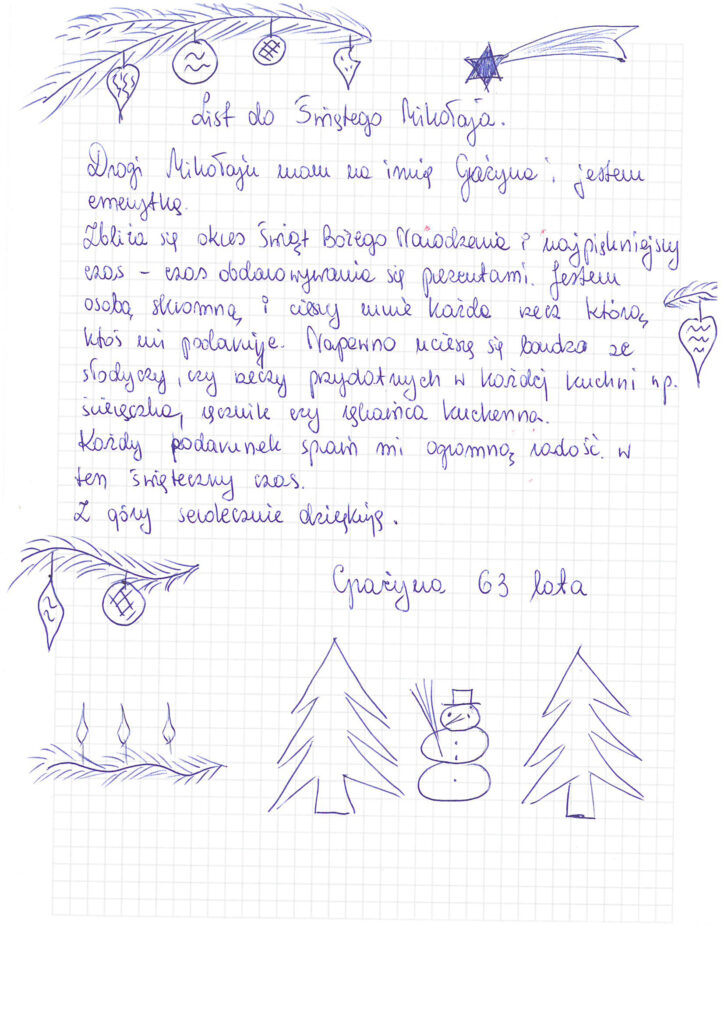 List do Świętego Mikołaja.
Drogi Mikołaju mam na imię Grażyna i jestem
emerytką.
Zbliża się okres Świąt Bożego Narodzenia i najpiękniejszy
czas – czas obdarowywania się prezentami. Jestem
osobą skromną i cieszy mnie każda rzecz którą
ktoś mi podaruje. Napewno ucieszę się bardzo ze
słodyczy, czy rzeczy przydatnych w każdej kuchni np.
ściereczka, ręcznik czy rękawica kuchenna.
Każdy podarunek sprawi mi ogromną radość w
ten świąteczny czas.
Z góry serdecznie dziękuję.
Grażyna 63 lata